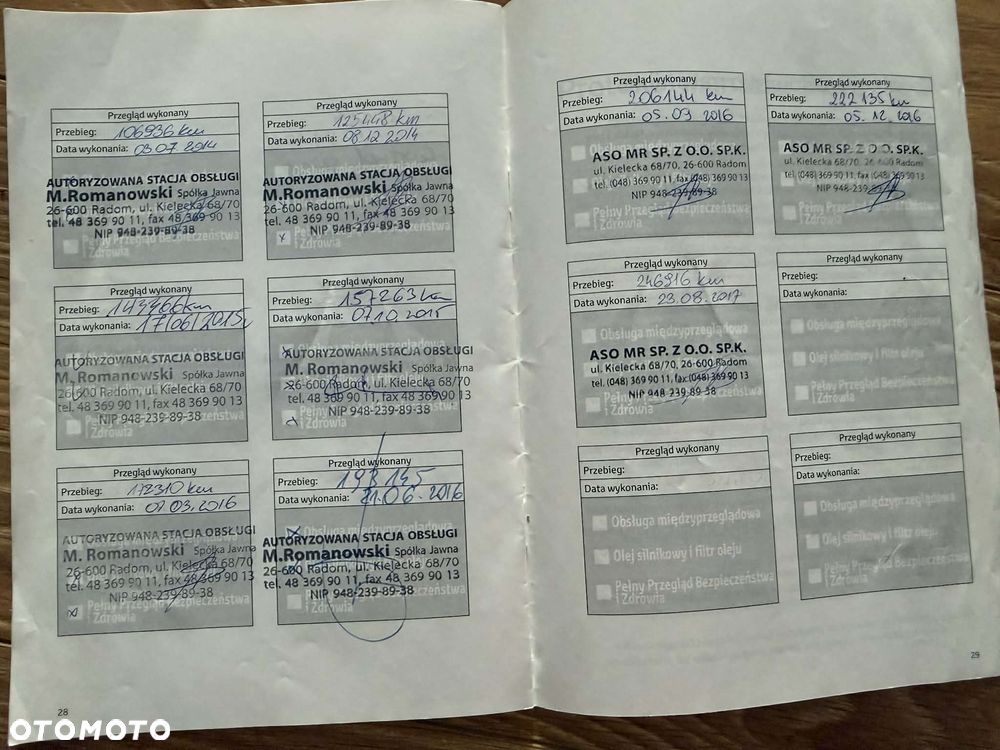 Przegląd wykonany
Przebieg: 106936 km
Data wykonania: 03 07 2014
AUTORYZOWANA STACJA OBSŁUGI
M.Romanowski Spółka Jawna
26-600 Radom, ul. Kielecka 68/70
tel. 48 369 90 11, fax 48 369 90 13
NIP 948-239-89-38
Pełny Przegląd Bezpieczeństwa
i Zdrowia
Przegląd wykonany
Przebieg: 125448 km
Data wykonania: 08 12 2014
AUTORYZOWANA STACJA OBSŁUGI
M.Romanowski Spółka Jawna
26-600 Radom, ul. Kielecka 68/70
tel. 48 369 90 11, fax 48 369 90 13
NIP 948-239-89-38
Pełny Przegląd Bezpieczeństwa
i Zdrowia
Przegląd wykonany
Przebieg: 143466 km
Data wykonania: 17/06/2015r
AUTORYZOWANA STACJA OBSŁUGI
M. Romanowski
26-600 Radom, ul. Kielecka 68/70
tel. 48 369 90 11, fax 48 369 90 13
NIP 948-239-89-38
i Zdrowia
Przegląd wykonany
Przebieg: 157263 km
Data wykonania: 07.10.2015
AUTORYZOWANA STACJA OBSŁUGI
M. Romanowski
26-600 Radom, ul. Kielecka 68/70
tel. 48 369 90 11, fax 48 369 90 13
NIP 948-239-89-38
i Zdrowia
Przegląd wykonany
Przebieg: 172310 km
Data wykonania: 07.03.2016
AUTORYZOWANA STACJA OBSŁUGI
M. Romanowski Spółka Jawna
26-600 Radom, ul. Kielecka 68/70
tel. 48 369 90 11, fax 48 369 90 13
NIP 948-239-89-38
Pełny Przegląd Bezpieczeństwa
i Zdrowia
Przegląd wykonany
Przebieg: 193 145
Data wykonania: 21.06.2016
Obsługa międzyprzeglądowa
AUTORYZOWANA STACJA OBSŁUGI
M.Romanowski Spółka Jawna
26-600 Radom, ul. Kielecka 68/70
tel. 48 369 90 11, fax 48 369 90 13
NIP 948-239-89-38
i Zdrowia
28
Przegląd wykonany
Przebieg: 206144 km
Data wykonania: 05.09 2016
ASO MR SP. Z O.O. SP.K.
ul. Kielecka 68/70, 26-600 Radom
tel. (048) 369 90 11, fax (048) 369 90 13
NIP 948-239-89-38
Pełny Przegląd Bezpieczeństwa
i Zdrowia
Przegląd wykonany
Przebieg: 222 135 km
Data wykonania: 05. 12. 2016
ASO MR SP. Z O.O. SP.K.
ul. Kielecka 68/70, 26-600 Radom
tel. (048) 369 90 11, fax (048) 369 90 13
Pełny Przegląd Bezpieczeństwa
i Zdrowia
Przegląd wykonany
Przebieg: 246916 km
Data wykonania: 23.08.2017
Obsługa międzyprzeglądowa
ASO MR SP. Z O.O. SP.K.
ul. Kielecka 68/70, 26-600 Radom
tel. (048) 369 90 11, fax (048) 369 90 13
NIP 948-239-89-38
i Zdrowia
Przegląd wykonany
Przebieg:
Data wykonania:
Obsługa międzyprzeglądowa
Olej silnikowy i filtr oleju
Pełny Przegląd Bezpieczeństwa
i Zdrowia
Przegląd wykonany
Przebieg:
Data wykonania:
Obsługa międzyprzeglądowa
Olej silnikowy i filtr oleju
Pełny Przegląd Bezpieczeństwa
i Zdrowia
Przegląd wykonany
Przebieg:
Data wykonania:
Obsługa międzyprzeglądowa
Olej silnikowy i filtr oleju
Pełny Przegląd Bezpieczeństwa
i Zdrowia
29
OTOMOTO